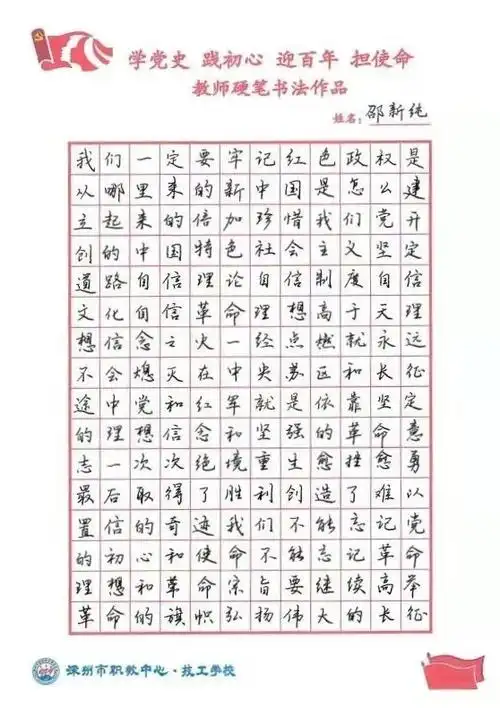 学党史 践初心 迎百年 担使命
教师硬笔书法作品
姓名：邵新纯
我们一定要牢记红色政权是
从哪里来的新中国是怎么建
立起来的倍加珍惜我们党开
创的中国特色社会主义坚定
道路自信理论自信制度自信
文化自信革命理想高于天理
想信念之火一经点燃就永远
不会熄灭在中央苏区和长征
途中党和红军就是依靠坚定
的理想信念和坚强的革命意
志一次次绝境重生愈挫愈勇
最后取得了胜利创造了难以
置信的奇迹我们不能忘记党
的初心和使命不能忘记革命
理想和革命宗旨要继续高举
革命的旗帜弘扬伟大的长征
深州市职教中心·技工学校